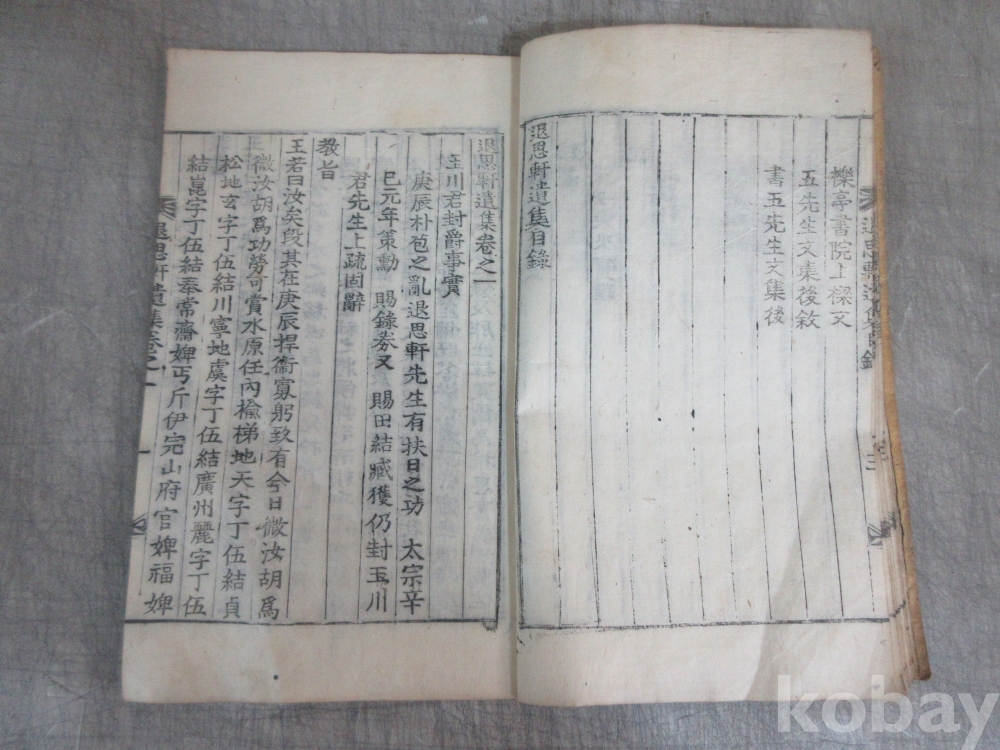 櫟亭書院上樑文
五先生文集後敘
書五先生文集後
退思軒遺集目錄
退思軒遺集卷之一
玉川君封爵事實
庚辰朴苞之亂退思軒先生有扶日之功 太宗辛
巳元年策勳 賜錄券又 賜田結臧獲仍封玉川
君先生上疏固辭
教旨
王若曰汝矣段其在庚辰捍衛寡躬致有今日微汝胡爲
微汝胡爲功勞可賞水原任內楡梯地天字丁伍結貞
松地玄字丁伍結川寧地虞字丁伍結廣州麗字丁伍
結崑字丁伍結奉常齋婢丐斤伊完山府官婢福婢
退思軒遺集卷之一
一
kobay